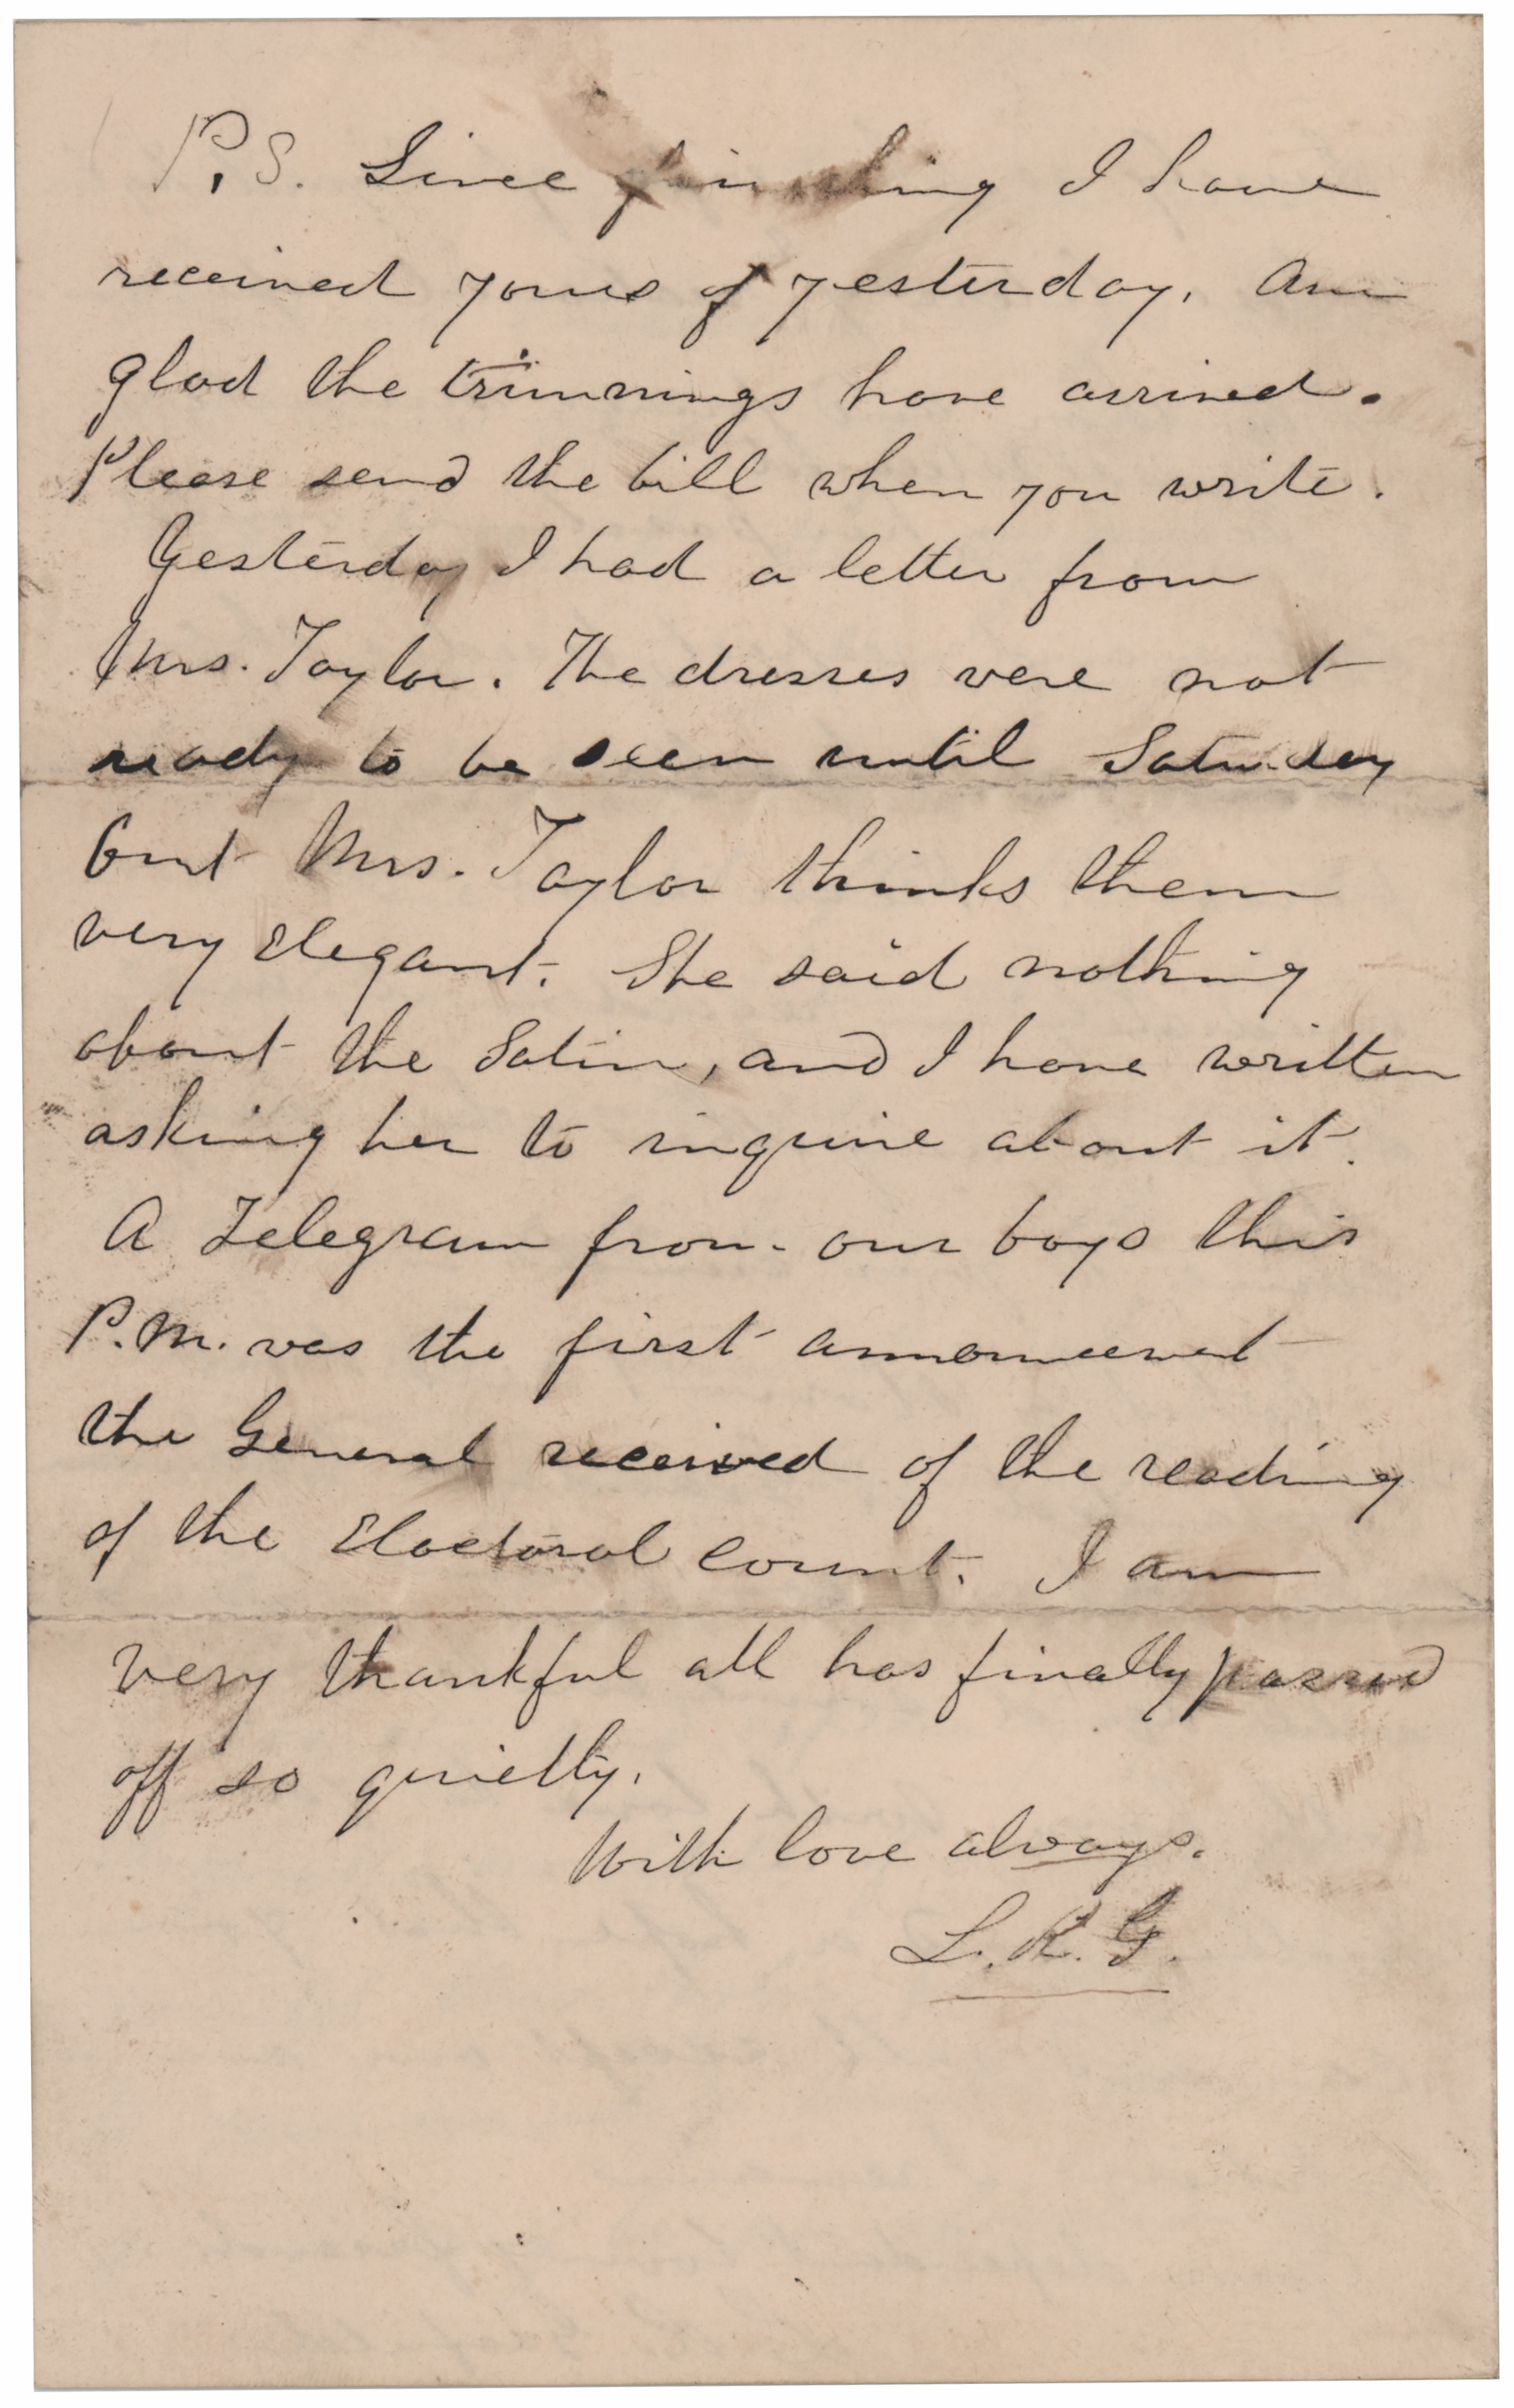 P.S. Since finishing I have
received yours of yesterday. Am
glad the trimmings have arrived.
Please send the bill when you write.
Yesterday I had a letter from
Mrs. Taylor. The dresses were not
ready to be seen until Saturday
but Mrs. Taylor thinks them
very elegant. She said nothing
about the Satin, and I have written
asking her to inquire about it.
A Telegram from our boys this
P.M. was the first
the General received of the reading
of the Electoral count. I am
very thankful all has finally passed
off so quietly.
With love always.
L.R.G.